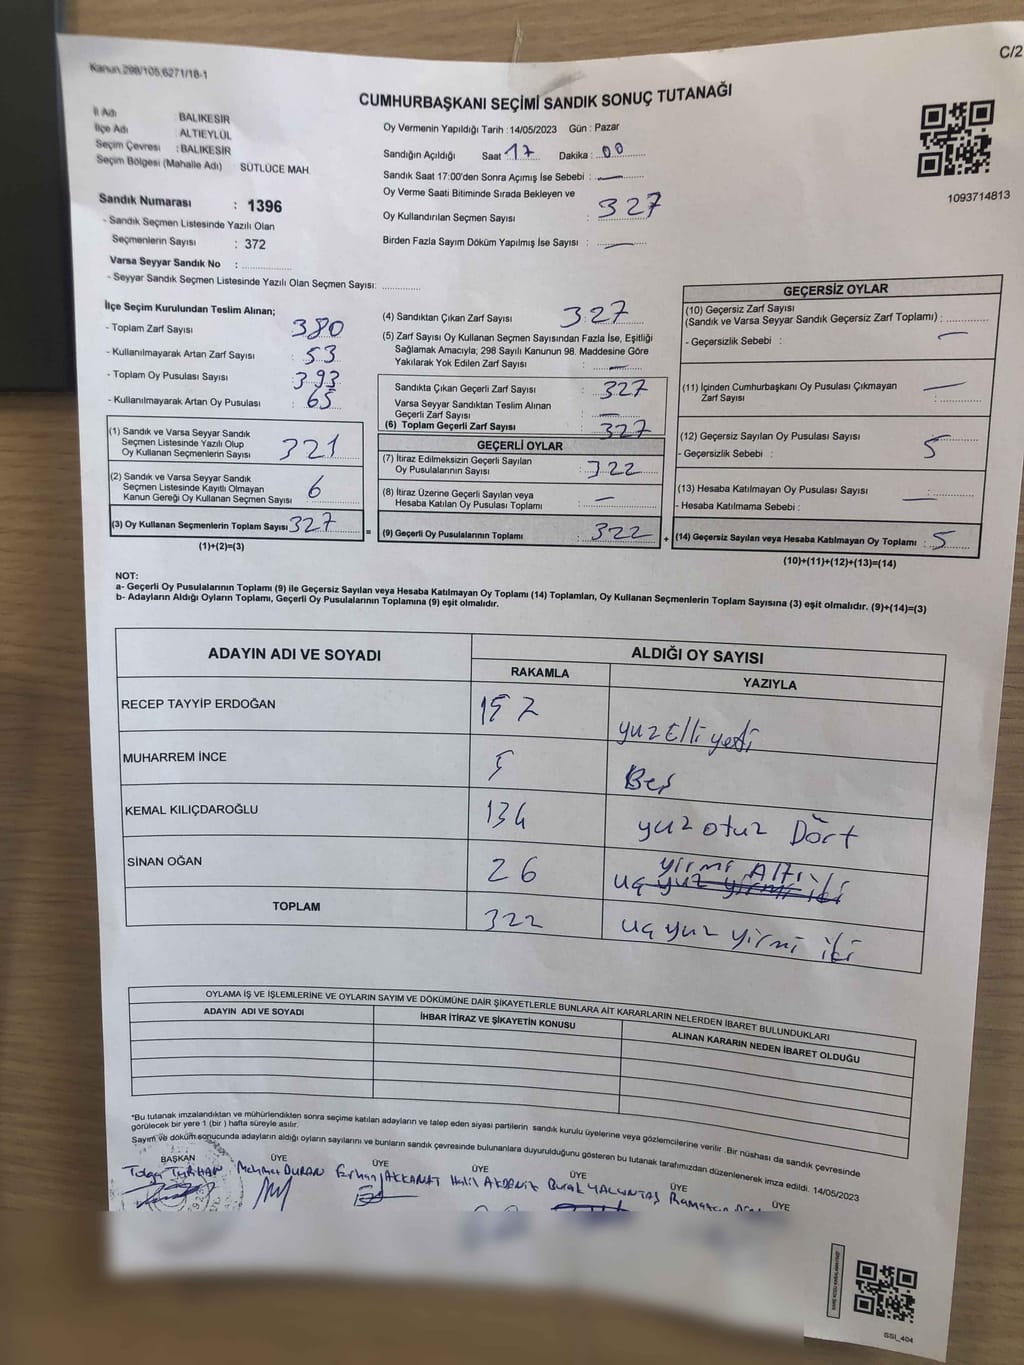 C/2
Kanun.298/105,6271/18-1
CUMHURBAŞKANI SEÇİMİ SANDIK SONUÇ TUTANAĞI
İl Adı : BALIKESİR
İlçe Adı : ALTIEYLÜL
Seçim Çevresi : BALIKESİR
Seçim Bölgesi (Mahalle Adı) SÜTLÜCE MAH.
Sandık Numarası : 1396
- Sandık Seçmen Listesinde Yazılı Olan
Seçmenlerin Sayısı : 372
Varsa Seyyar Sandık No :
- Seyyar Sandık Seçmen Listesinde Yazılı Olan Seçmen Sayısı:
Oy Vermenin Yapıldığı Tarih : 14/05/2023 Gün : Pazar
Sandığın Açıldığı Saat 17 Dakika : 00
Sandık Saat 17:00'den Sonra Açımış İse Sebebi : —
Oy Verme Saati Bitiminde Sırada Bekleyen ve
Oy Kullandırılan Seçmen Sayısı : 327
Birden Fazla Sayım Döküm Yapılmış İse Sayısı : —
1093714813
İlçe Seçim Kurulundan Teslim Alınan;
- Toplam Zarf Sayısı : 380
- Kullanılmayarak Artan Zarf Sayısı : 53
- Toplam Oy Pusulası Sayısı : 393
- Kullanılmayarak Artan Oy Pusulası : 65
(1) Sandık ve Varsa Seyyar Sandık
Seçmen Listesinde Yazılı Olup
Oy Kullanan Seçmenlerin Sayısı : 321
(2) Sandık ve Varsa Seyyar Sandık
Seçmen Listesinde Kayıtlı Olmayan
Kanun Gereği Oy Kullanan Seçmen Sayısı : 6
(3) Oy Kullanan Seçmenlerin Toplam Sayısı : 327
(1)+(2)=(3)
=
(4) Sandıktan Çıkan Zarf Sayısı : 327
(5) Zarf Sayısı Oy Kullanan Seçmen Sayısından Fazla İse, Eşitliği
Sağlamak Amacıyla; 298 Sayılı Kanunun 98. Maddesine Göre
Yakılarak Yok Edilen Zarf Sayısı : —
Sandıkta Çıkan Geçerli Zarf Sayısı : 327
Varsa Seyyar Sandıktan Teslim Alınan
Geçerli Zarf Sayısı : —
(6) Toplam Geçerli Zarf Sayısı : 327
GEÇERLİ OYLAR
(7) İtiraz Edilmeksizin Geçerli Sayılan
Oy Pusulalarının Sayısı : 322
(8) İtiraz Üzerine Geçerli Sayılan veya
Hesaba Katılan Oy Pusulası Toplamı : —
(9) Geçerli Oy Pusulalarının Toplamı : 322
+
GEÇERSİZ OYLAR
(10) Geçersiz Zarf Sayısı
(Sandık ve Varsa Seyyar Sandık Geçersiz Zarf Toplamı) :
- Geçersizlik Sebebi : —
(11) İçinden Cumhurbaşkanı Oy Pusulası Çıkmayan
Zarf Sayısı : —
(12) Geçersiz Sayılan Oy Pusulası Sayısı : 5
- Geçersizlik Sebebi :
(13) Hesaba Katılmayan Oy Pusulası Sayısı : —
- Hesaba Katılmama Sebebi :
(14) Geçersiz Sayılan veya Hesaba Katılmayan Oy Toplamı : 5
(10)+(11)+(12)+(13)=(14)
NOT:
a- Geçerli Oy Pusulalarının Toplamı (9) ile Geçersiz Sayılan veya Hesaba Katılmayan Oy Toplamı (14) Toplamları, Oy Kullanan Seçmenlerin Toplam Sayısına (3) eşit olmalıdır. (9)+(14)=(3)
b- Adayların Aldığı Oyların Toplamı, Geçerli Oy Pusulalarının Toplamına (9) eşit olmalıdır.
ADAYIN ADI VE SOYADI ALDIĞI OY SAYISI
RAKAMLA YAZIYLA
RECEP TAYYİP ERDOĞAN 157 yuz Elli yedi
MUHARREM İNCE 5 Beş
KEMAL KILIÇDAROĞLU 134 yuz otuz Dört
SİNAN OĞAN 26 yirmi Altı
uç yuz yirmi iki
TOPLAM 322 uç yuz yirmi iki
OYLAMA İŞ VE İŞLEMLERİNE VE OYLARIN SAYIM VE DÖKÜMÜNE DAİR ŞİKAYETLERLE BUNLARA AİT KARARLARIN NELERDEN İBARET BULUNDUKLARI
ADAYIN ADI VE SOYADI İHBAR İTİRAZ VE ŞİKAYETİN KONUSU ALINAN KARARIN NEDEN İBARET OLDUĞU
*Bu tutanak imzalandıktan ve mühürlendikten sonra seçime katılan adayların ve talep eden siyasi partilerin sandık kurulu üyelerine veya gözlemcilerine verilir. Bir nüshası da sandık çevresinde
görülecek bir yere 1 (bir ) hafta süreyle asılır.
Sayım ve döküm sonucunda adayların aldığı oyların sayılarını ve bunların sandık çevresinde bulunanlara duyurulduğunu gösteren bu tutanak tarafımızdan düzenlenerek imza edildi. 14/05/2023
BAŞKAN ÜYE ÜYE ÜYE ÜYE ÜYE ÜYE
Tolga TURHAN Mehmet DURAN Erhan AKKANAT Halil AKDENİZ Burak YALÇINTAŞ Ramazan
SSI_404